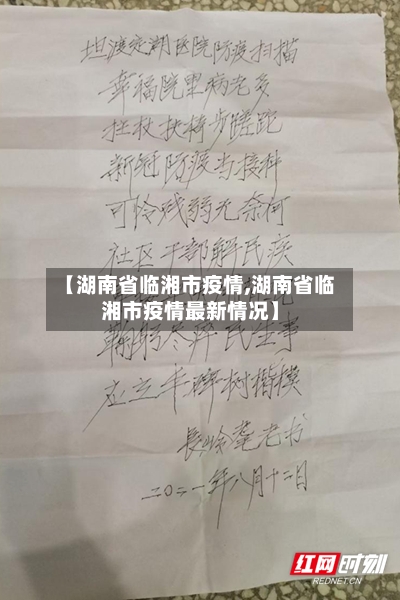 坦渡定湖医院防疫扫描
幸福院里病老多
拄杖扶椅步蹉跎
新冠防疫当接种
可怜残弱无奈何
社区干部解民疾
【湖南省临湘市疫情,湖南省临
湘市疫情最新情况】
鞠躬尽瘁民生事
应立丰碑树楷模
長岭聋老书
二〇二一年八月十二日
红网时刻
REDNET.CN